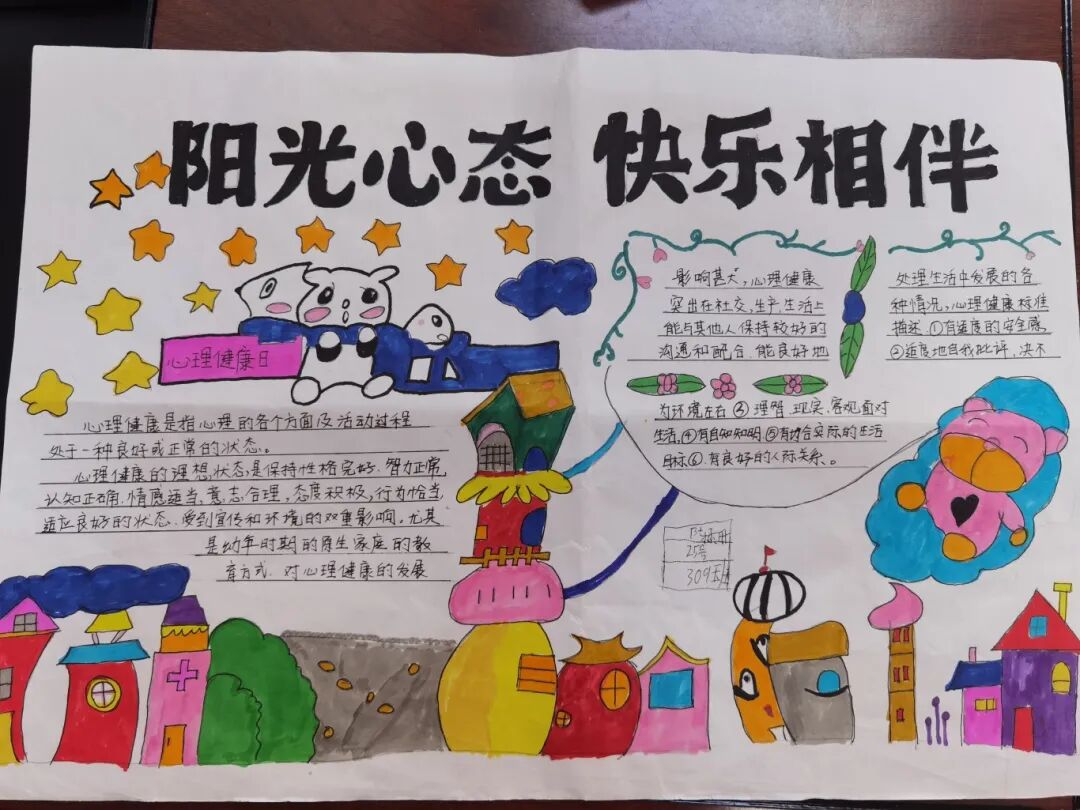 阳光心态 快乐相伴
心理健康日
心理健康是指心理的各个方面及活动过程
处于一种良好或正常的状态。
心理健康的理想状态,是保持性格完好.智力正常,
认知正确.情感适当、意志合理,态度积极,行为恰当,
适应良好的状态.受到宣传和环境的双重影响。尤其
是幼年时期的原生家庭的教
育方式.对心理健康的发展
影响甚大,心理健康
突出在社交,生产,生活上
能与其他人保持较好的
沟通和配合.能良好地
处理生活中发展的各
种情况,心理健康标准
描述.①有适度的安全感
②适度地自我批评,决不
为环境左右③理智.现实.客观面对
生活,④有自知知明.⑤有切合实际的生活
目标⑥.有良好的人际关系。
25号
309班